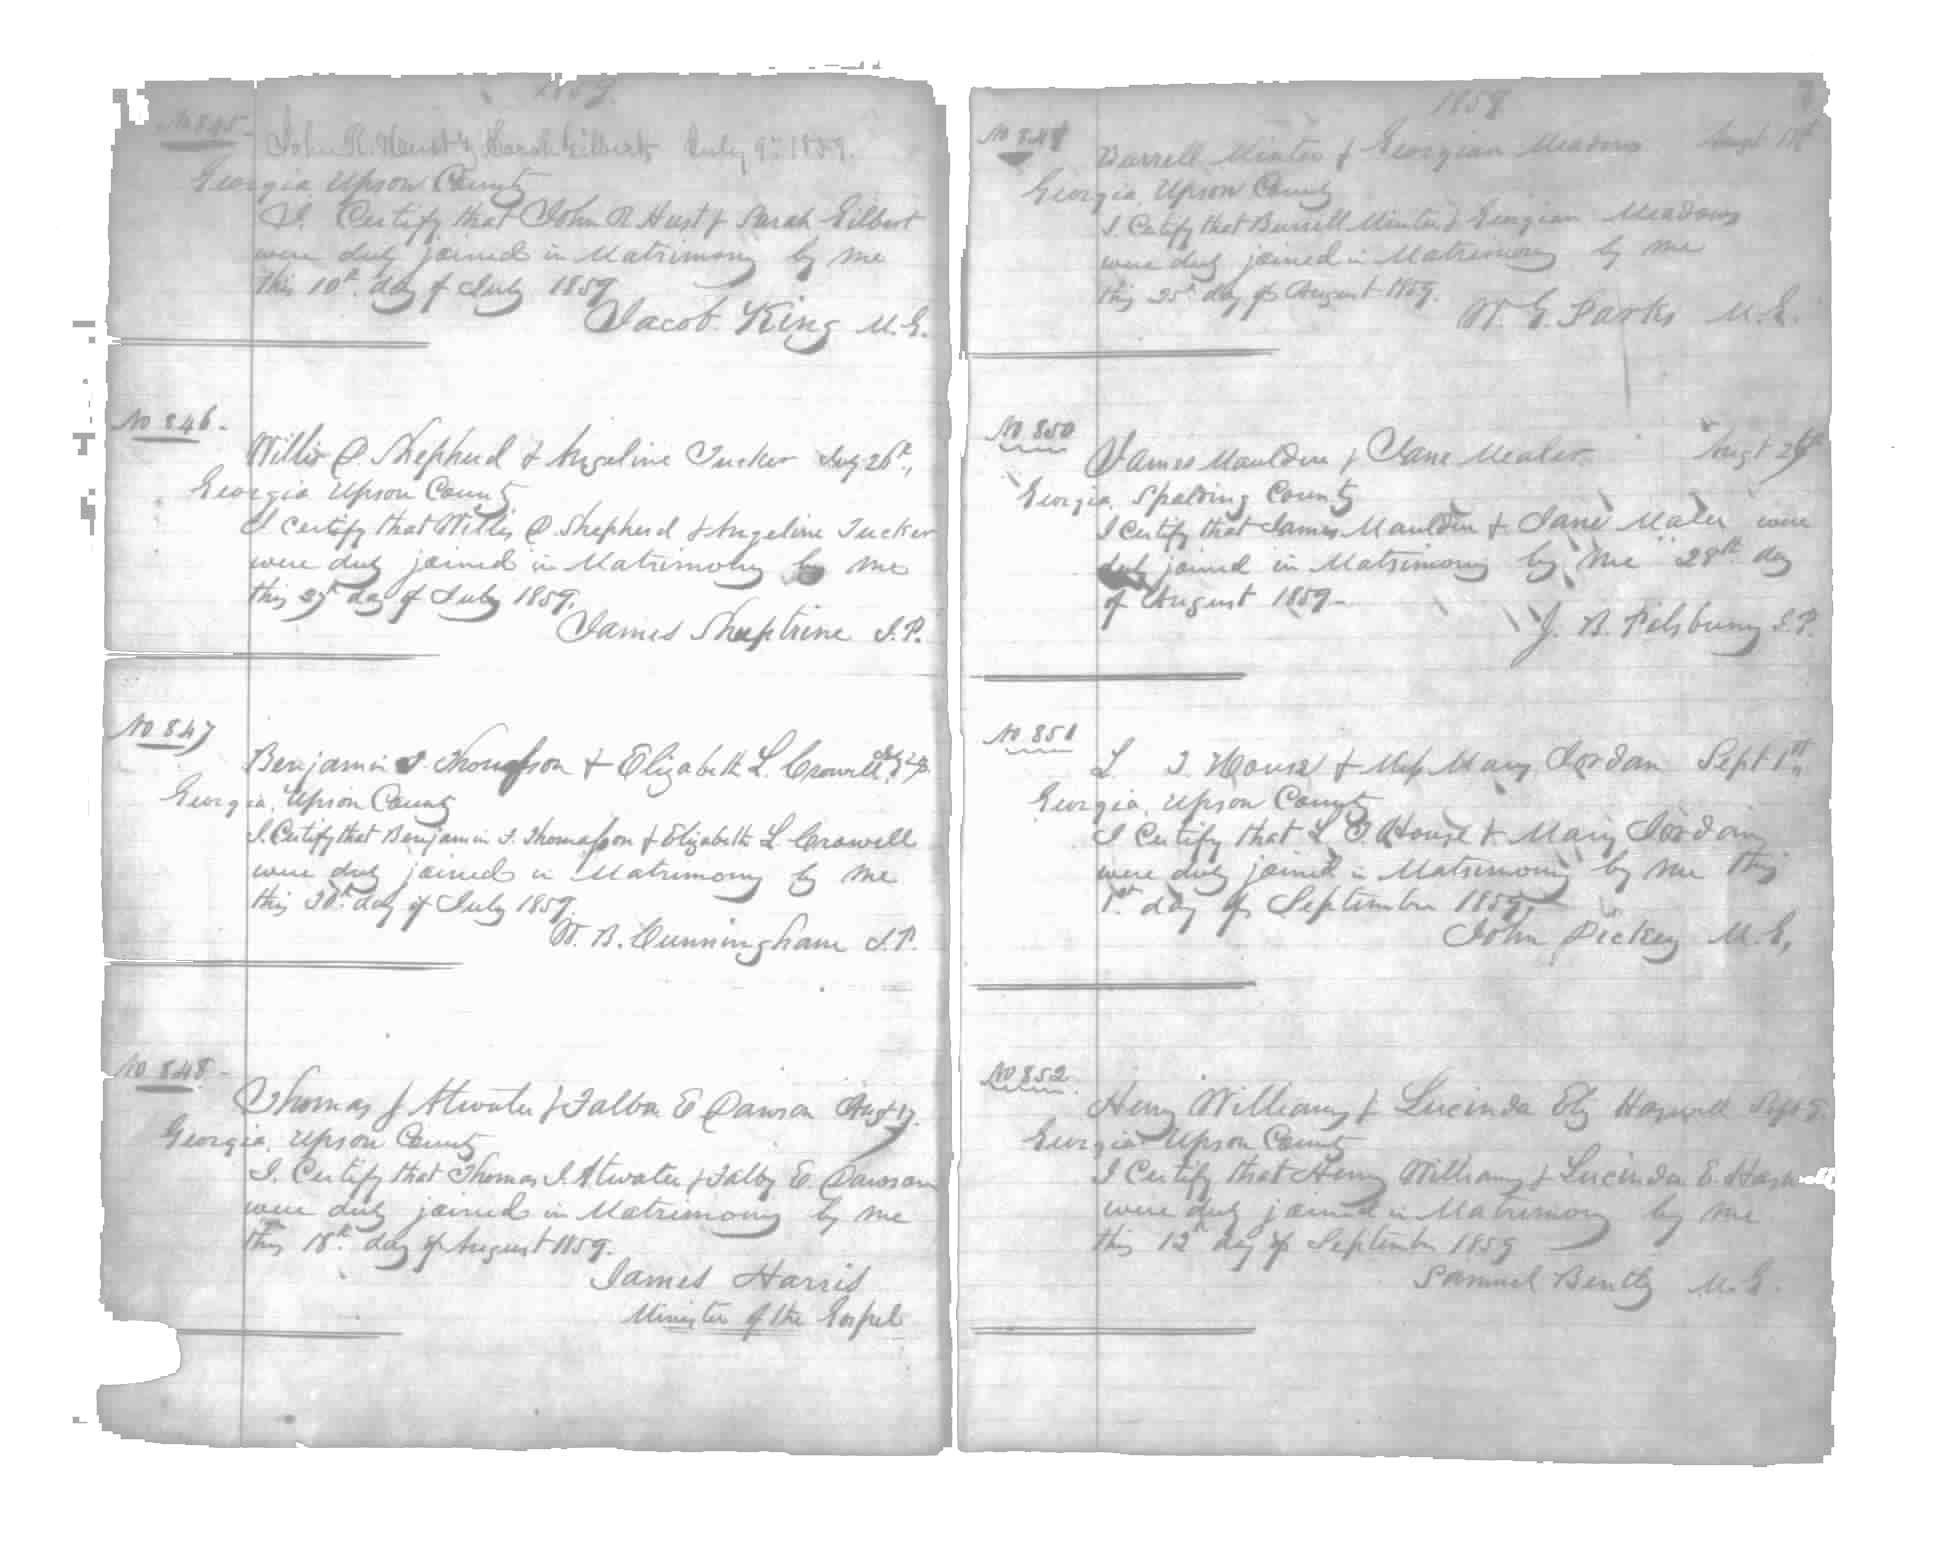 1859.
No 845-
John R. Hurst & Sarah Gilbert July 9th 1859.
Georgia Upson County
I. Certify that John R Hust & Sarah Gilbert
were duly joined in Matrimony by me
this 10th day of July 1859
Jacob King M.G.
No 846-
Willis P. Shepherd & Angeline Tucker July 26th,
Georgia Upson County
I certify that Willis P. Shepherd & Angeline Tucker
were duly joined in Matrimony by me
this day of July 1859.
James Sheptrine J.P.
No 847
Benjamin Thomasson & Elizabeth L. Crowell
Georgia, Upson County
I. Certify that Benjamin F. Thomasson & Elizabeth L. Crowell
were duly joined in Matrimony by me
this 30th day of July 1859.
W. B. Cunningham J.P.
No 848-
Thomas J Atwater & Talba E Dawson Aug 17.
Georgia, Upson County
I. Certify that Thomas J. Atwater & Talby E. Dawson
were duly joined in Matrimony by me
this 18th day of August 1859.
James Harris
Minister of the Gospel
1859
No 849
Burrell Minter & Georgian Meadows Augt
Georgia, Upson County
I. Certify that Burrell Minter & Georgian Meadows
were duly joined in Matrimony by me
this 25th day of August 1859.
W. G. Parks M.G.
No 850
James Mauldin & Jane Mealer Augt
Georgia, Spalding County
I certify that James Mauldin & Jane Maler were
duly joined in Matrimony by me 28th day
of August 1859-
J. B. Pilsbury J.P.
No 851
L J. House & Miss Mary Jordan Sept 1st
Georgia, Upson County
I Certify that L J. House & Mary Jordan
were duly joined in Matrimony by me this
1st day of September 1859.
John Dickey M.G,
No 852
Henry Williams & Lucinda Elz Haswell Sept
Georgia Upson County
I Certify that Henry Williams & Lucinda E. Hasw
were duly joined in Matrimony by me
this 12th day of September 1859
Samuel Bently M.G.